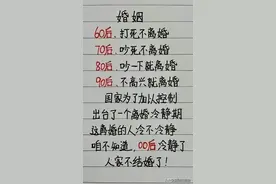 婚姻
60后，打死不离婚
70后，吵死不离婚
80后，吵一下就离婚
90后，不高兴就离婚
国家为了加以控制
出台了一个离婚冷静期
这离婚的人冷不冷静
咱不知道，00后冷静了
人家不结婚了！